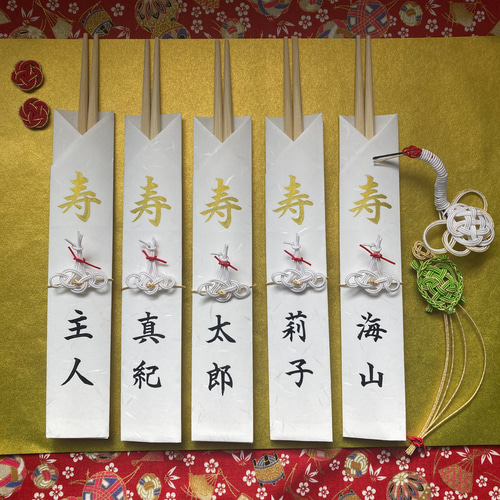 寿
主人
寿
真紀
寿
太郎
寿
莉子
寿
海山